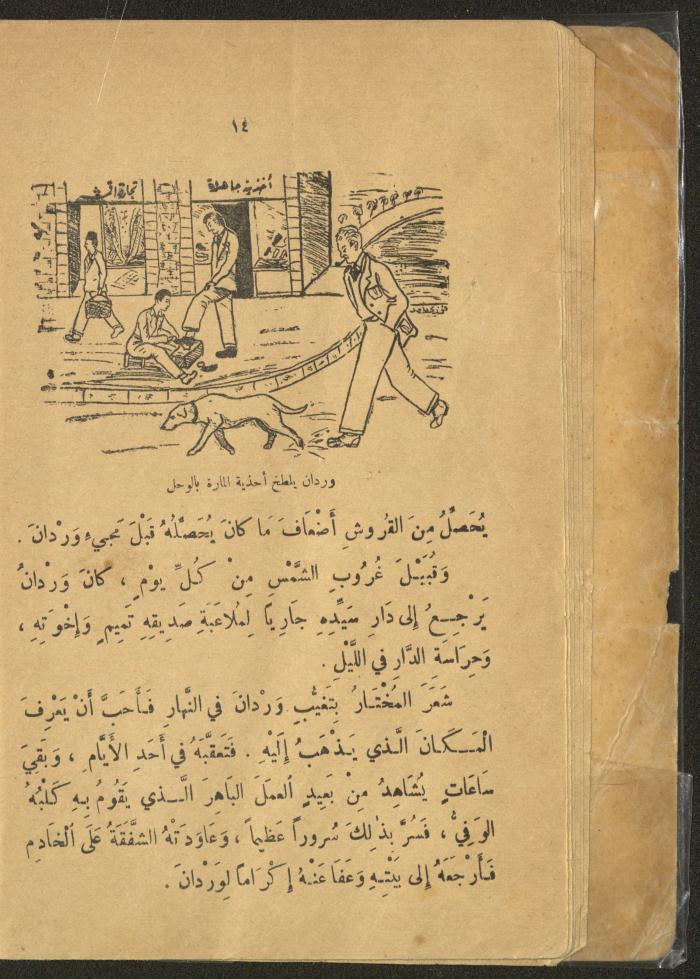 ١٤
أحذية جاهزة
تجارة
وردان يلطخ أحذية المارة بالوحل
يُحَصِّلُ مِنَ القُروشِ أَضْعَافَ مَا كانَ يُحَصِّلُهُ قَبْلَ مَجِيءِ وَرْدانَ .
وَقُبَيْلَ غُرُوبِ الشَّمْسِ مِنْ كُلِّ يوْمٍ ، كانَ وَرْدانُ
يَرْجِعُ إِلى دَارِ سَيِّدِهِ جَارِياً لِمُلاعَبَةِ صَدِيقِهِ تَمِيمٍ وَإِخْوَتِهِ ،
وَحِرَاسَةِ الدَّارِ في اللَّيْلِ .
شَعَرَ المُخْتَارُ بِتَغَيُّبِ وَرْدانَ في النَّهارِ فَأَحَبَّ أَنْ يَعْرِفَ
الْمَكَانَ الَّذي يَذْهَبُ إِلَيْهِ . فَتَعَقَّبَهُ في أَحَدِ الأَيَّامِ ، وَبَقِيَ
سَاعَاتٍ يُشَاهِدُ مِنْ بَعِيدٍ العمَلَ البَاهِرَ الَّذي يَقُومُ بِهِ كَلْبُهُ
الوَفِيُّ ، فَسُرَّ بِذٰلِكَ سُروراً عَظِيماً ، وَعَاوَدَتْهُ الشَّفَقَةُ عَلَى الْخَادِمِ
فَأَرْجَعَهُ إِلى بَيْتِهِ وَعَفَا عَنْهُ إِكْرَاماً لِوَرْدانَ .